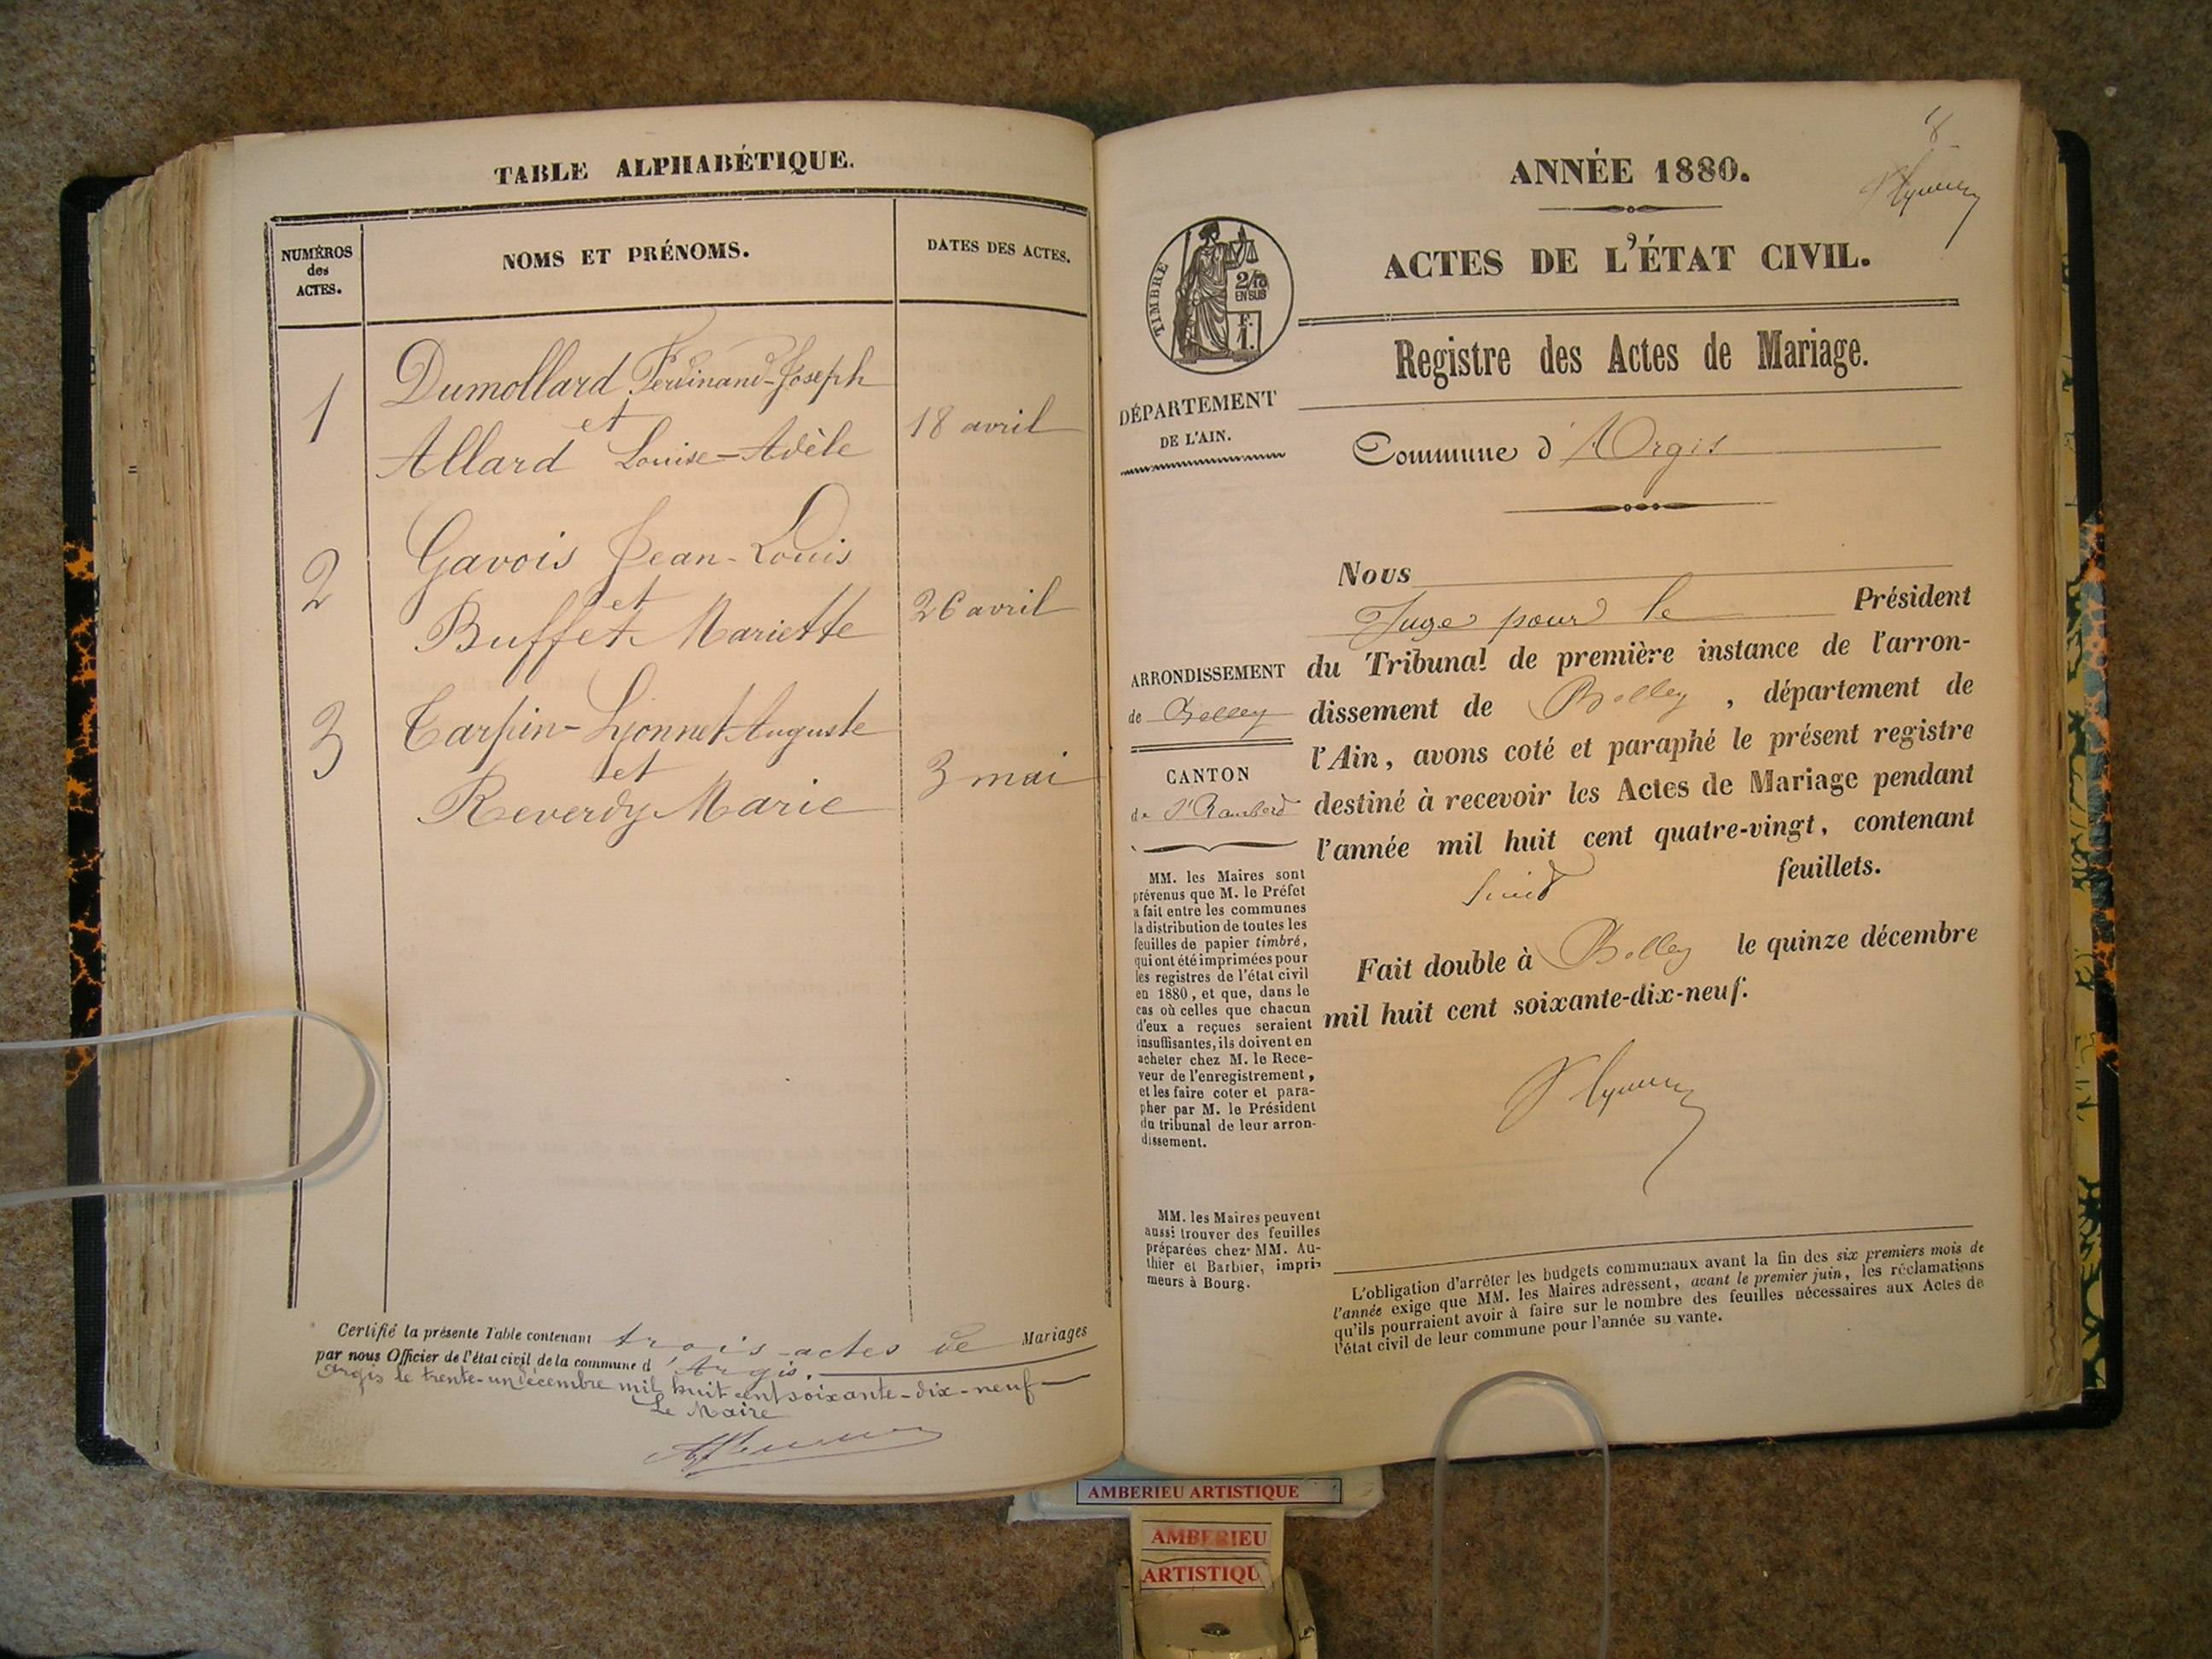 TABLE ALPHABÉTIQUE.
NUMÉROS
des
ACTES.
NOMS ET PRÉNOMS.
DATES DES ACTES.
1
Dumollard Ferdinand-Joseph
et
Allard Louise-Adèle
18 avril
2
Gavois Jean-Louis
et
Buffet Mariette
26 avril
3
Tarpin-Lyonnet Auguste
et
Reverdy Marie
3 mai
Certifié la présente Table contenant trois actes de Mariages
par nous Officier de l'état civil de la commune d'Argis.
Argis le trente-un décembre mil huit cent soixante-dix-neuf
Le Maire
8
ANNÉE 1880.
ACTES DE L'ÉTAT CIVIL.
TIMBRE
2/10
EN SUS
F.
1.
Registre des Actes de Mariage.
DÉPARTEMENT
DE L'AIN.
Commune d'Argis
Nous
Juge pour le Président
du Tribunal de première instance de l'arron-
dissement de Belley, département de
l'Ain, avons coté et paraphé le présent registre
destiné à recevoir les Actes de Mariage pendant
l'année mil huit cent quatre-vingt, contenant
huit feuillets.
Fait double à Belley le quinze décembre
mil huit cent soixante-dix-neuf.
ARRONDISSEMENT
de Belley
CANTON
de St Rambert
MM. les Maires sont
prévenus que M. le Préfet
a fait entre les communes
la distribution de toutes les
feuilles de papier timbré,
qui ont été imprimées pour
les registres de l'état civil
en 1880, et que, dans le
cas où celles que chacun
d'eux a reçues seraient
insuffisantes, ils doivent en
acheter chez M. le Rece-
veur de l'enregistrement,
et les faire coter et para-
pher par M. le Président
du tribunal de leur arron-
dissement.
MM. les Maires peuvent
aussi trouver des feuilles
préparées chez MM. Au-
thier et Barbier, impri-
meurs à Bourg.
L'obligation d'arrêter les budgets communaux avant la fin des six premiers mois de
l'année exige que MM. les Maires adressent, avant le premier juin, les réclamations
qu'ils pourraient avoir à faire sur le nombre des feuilles nécessaires aux Actes de
l'état civil de leur commune pour l'année su vante.
AMBERIEU ARTISTIQUE
AMBERIEU
ARTISTIQU